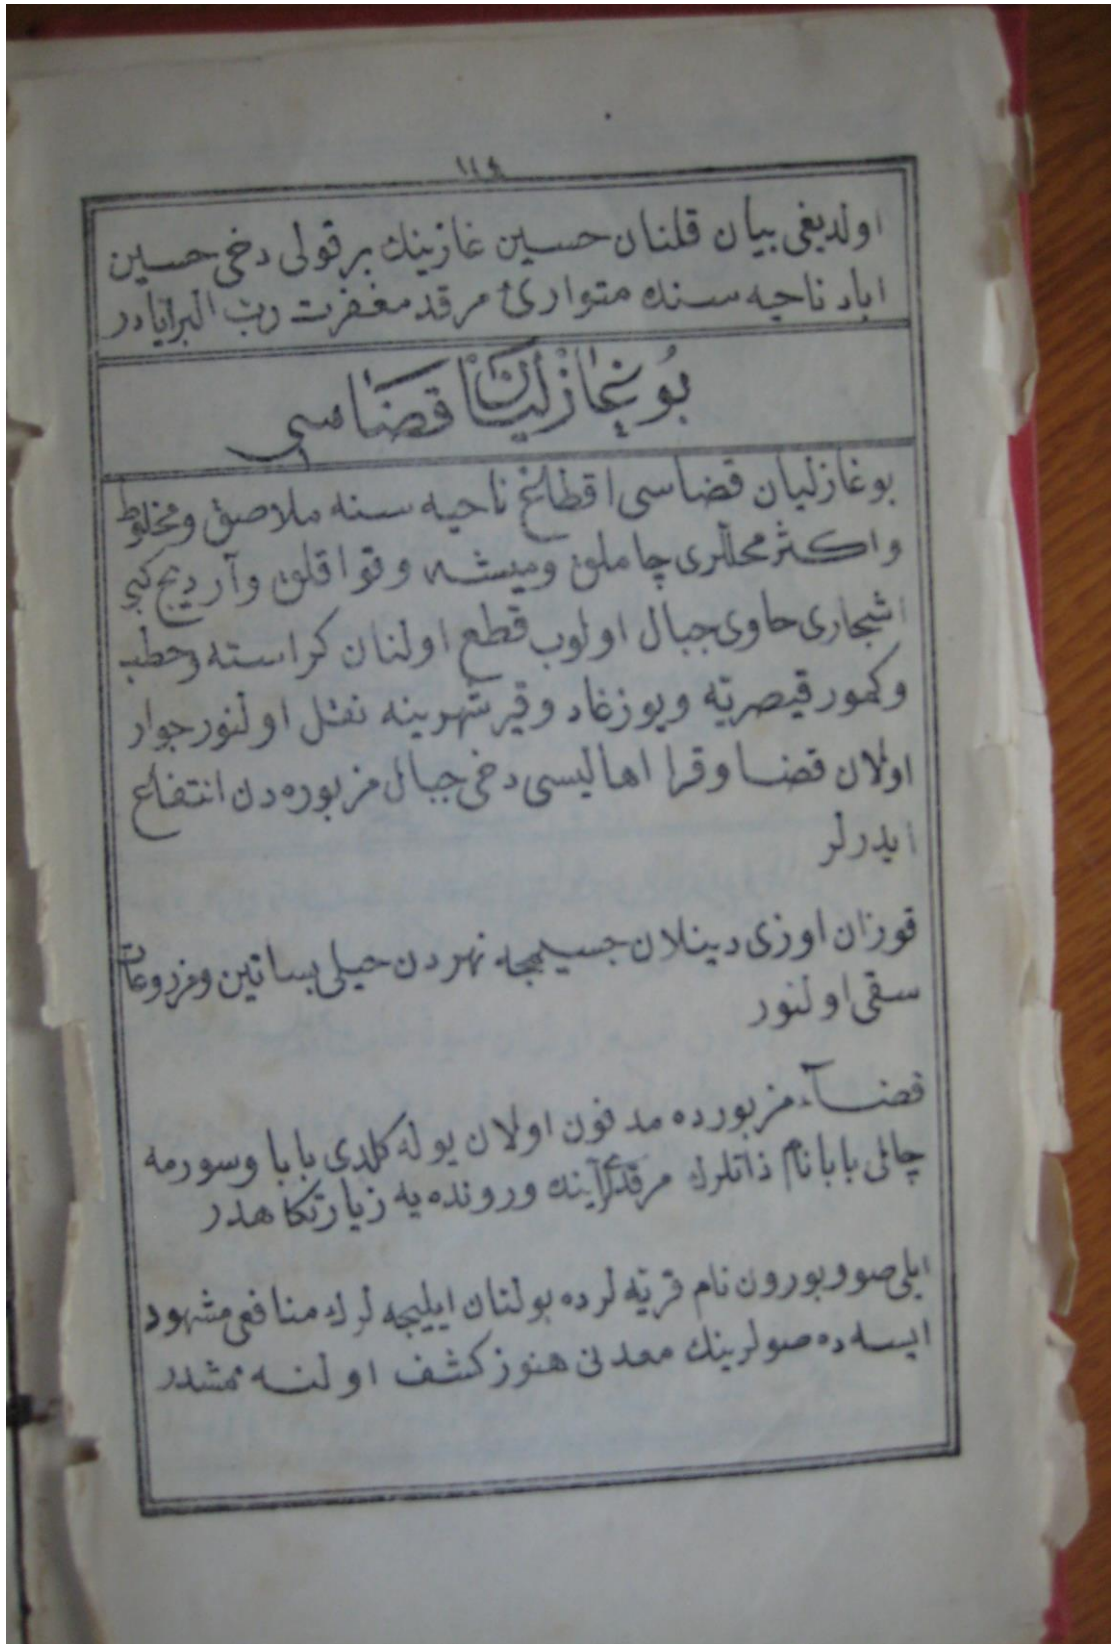 ١١٤
اولديغی بيان قلنان حسين غازينك بر قولی دخی حسين
اباد ناحيه سنده متواریٔ مرقد مغفرت رب البرايادر
بوغازليان قضاسی
بوغازليان قضاسی اقطاغ ناحيه سنه ملاصق و مخلوط
و اكثر محللری چاملق و ميشه و قواقلق و آرديج كبی
اشجاری حاوی جبال اولوب قطع اولنان كراسته و حطب
و كمور قيصريّه و يوزغاد و قير شهرينه نقل اولنور جوار
اولان قضا و قرا اهاليسی دخی جبال مزبوره دن انتفاع
ايدرلر
قوزان اوزی دينلان جسيمجه نهردن خيلی بساتين و مزروعات
سقی اولنور
قضآء مزبورده مدفون اولان يوله كلدی بابا و سورمه
چالی بابا نام ذاتلرك مرقدلری آينده و رونده يه زيارتكاهدر
ايلی صو و بورون نام قريه لرده بولنان ايليجه لرك منافعی مشهود
ايسه ده صولرينك معدنی هنوز كشف اولنه ممشدر